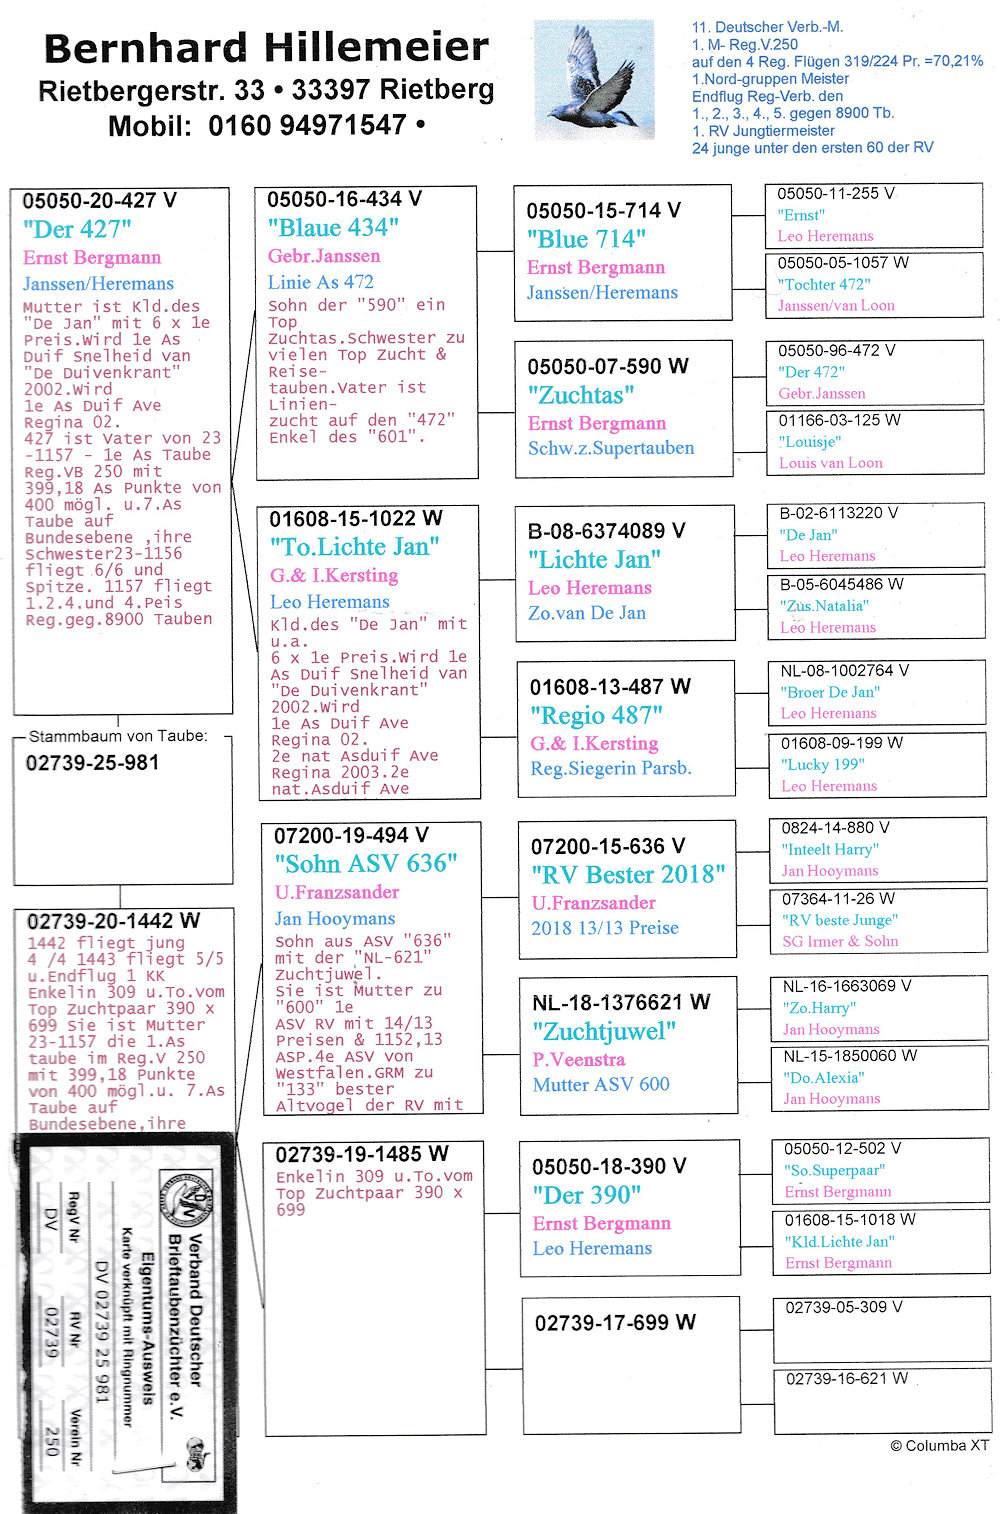 Bernhard Hillemeier
Rietbergerstr. 33 • 33397 Rietberg
Mobil: 0160 94971547 •
11. Deutscher Verb.-M.
1. M- Reg.V.250
auf den 4 Reg. Flügen 319/224 Pr. =70,21%
1.Nord-gruppen Meister
Endflug Reg-Verb. den
1., 2., 3., 4., 5. gegen 8900 Tb.
1. RV Jungtiermeister
24 junge unter den ersten 60 der RV
05050-20-427 V
"Der 427"
Ernst Bergmann
Janssen/Heremans
Mutter ist Kld.des
"De Jan" mit 6 x 1e
Preis.Wird 1e As
Duif Snelheid van
"De Duivenkrant"
2002.Wird
1e As Duif Ave
Regina 02.
427 ist Vater von 23
-1157 - 1e As Taube
Reg.VB 250 mit
399,18 As Punkte von
400 mögl. u.7.As
Taube auf
Bundesebene ,ihre
Schwester23-1156
fliegt 6/6 und
Spitze. 1157 fliegt
1.2.4.und 4.Peis
Reg.geg.8900 Tauben
Stammbaum von Taube:
02739-25-981
02739-20-1442 W
1442 fliegt jung
4 /4 1443 fliegt 5/5
u.Endflug 1 KK
Enkelin 309 u.To.vom
Top Zuchtpaar 390 x
699 Sie ist Mutter
23-1157 die 1.As
taube im Reg.V 250
mit 399,18 Punkte
von 400 mögl.u. 7.As
Taube auf
Bundesebene,ihre
05050-16-434 V
"Blaue 434"
Gebr.Janssen
Linie As 472
Sohn der "590" ein
Top
Zuchtas.Schwester zu
vielen Top Zucht &
Reise-
tauben.Vater ist
Linien-
zucht auf den "472"
Enkel des "601".
01608-15-1022 W
"To.Lichte Jan"
G.& I.Kersting
Leo Heremans
Kld.des "De Jan" mit
u.a.
6 x 1e Preis.Wird 1e
As Duif Snelheid van
"De Duivenkrant"
2002.Wird
1e As Duif Ave
Regina 02.
2e nat Asduif Ave
Regina 2003.2e
nat.Asduif Ave
07200-19-494 V
"Sohn ASV 636"
U.Franzsander
Jan Hooymans
Sohn aus ASV "636"
mit der "NL-621"
Zuchtjuwel.
Sie ist Mutter zu
"600" 1e
ASV RV mit 14/13
Preisen & 1152,13
ASP.4e ASV von
Westfalen.GRM zu
"133" bester
Altvogel der RV mit
02739-19-1485 W
Enkelin 309 u.To.vom
Top Zuchtpaar 390 x
699
05050-15-714 V
"Blue 714"
Ernst Bergmann
Janssen/Heremans
05050-07-590 W
"Zuchtas"
Ernst Bergmann
Schw.z.Supertauben
B-08-6374089 V
"Lichte Jan"
Leo Heremans
Zo.van De Jan
01608-13-487 W
"Regio 487"
G.& I.Kersting
Reg.Siegerin Parsb.
07200-15-636 V
"RV Bester 2018"
U.Franzsander
2018 13/13 Preise
NL-18-1376621 W
"Zuchtjuwel"
P.Veenstra
Mutter ASV 600
05050-18-390 V
"Der 390"
Ernst Bergmann
Leo Heremans
02739-17-699 W
05050-11-255 V
"Ernst"
Leo Heremans
05050-05-1057 W
"Tochter 472"
Janssen/van Loon
05050-96-472 V
"Der 472"
Gebr.Janssen
01166-03-125 W
"Louisje"
Louis van Loon
B-02-6113220 V
"De Jan"
Leo Heremans
B-05-6045486 W
"Zus.Natalia"
Leo Heremans
NL-08-1002764 V
"Broer De Jan"
Leo Heremans
01608-09-199 W
"Lucky 199"
Leo Heremans
0824-14-880 V
"Inteelt Harry"
Jan Hooymans
07364-11-26 W
"RV beste Junge"
SG Irmer & Sohn
NL-16-1663069 V
"Zo.Harry"
Jan Hooymans
NL-15-1850060 W
"Do.Alexia"
Jan Hooymans
05050-12-502 V
"So.Superpaar"
Ernst Bergmann
01608-15-1018 W
"Kld.Lichte Jan"
Ernst Bergmann
02739-05-309 V
02739-16-621 W
© Columba XT
Verband Deutscher
Brieftaubenzüchter e.V.
Eigentums-Ausweis
Karte verknüpft mit Ringnummer
DV 02739 25 981
RegV Nr RV Nr Verein Nr
DV 02739 250